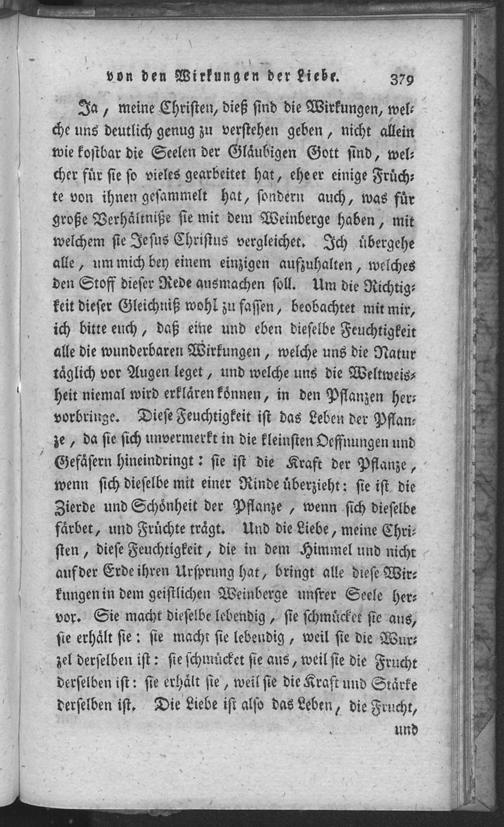 von den Wirkungen der Liebe. 379
Ja, meine Christen, dieß sind die Wirkungen, wel-
che uns deutlich genug zu verstehen geben, nicht allein
wie kostbar die Seelen der Gläubigen Gott sind, wel-
cher für sie so vieles gearbeitet hat, ehe er einige Früch-
te von ihnen gesammelt hat, sondern auch, was für
große Verhältniße sie mit dem Weinberge haben, mit
welchem sie Jesus Christus vergleichet. Ich übergehe
alle, um mich bey einem einzigen aufzuhalten, welches
den Stoff dieser Rede ausmachen soll. Um die Richtig-
keit dieser Gleichniß wohl zu fassen, beobachtet mit mir,
ich bitte euch, daß eine und eben dieselbe Feuchtigkeit
alle die wunderbaren Wirkungen, welche uns die Natur
täglich vor Augen leget, und welche uns die Weltweis-
heit niemal wird erklären können, in den Pflanzen her-
vorbringe. Diese Feuchtigkeit ist das Leben der Pflan-
ze, da sie sich unvermerkt in die kleinsten Oeffnungen und
Gefäsern hineindringt: sie ist die Kraft der Pflanze,
wenn sich dieselbe mit einer Rinde überzieht: sie ist die
Zierde und Schönheit der Pflanze, wenn sich dieselbe
färbet, und Früchte trägt. Und die Liebe, meine Chri-
sten, diese Feuchtigkeit, die in dem Himmel und nicht
auf der Erde ihren Ursprung hat, bringt alle diese Wir-
kungen in dem geistlichen Weinberge unsrer Seele her-
vor. Sie macht dieselbe lebendig, sie schmücket sie aus,
sie erhält sie: sie macht sie lebendig, weil sie die Wur-
zel derselben ist: sie schmücket sie aus, weil sie die Frucht
derselben ist: sie erhält sie, weil sie die Kraft und Stärke
derselben ist. Die Liebe ist also das Leben, die Frucht,
und